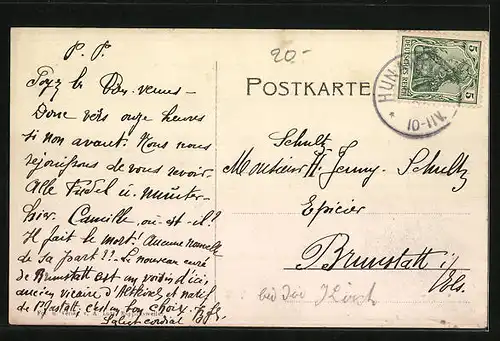 P. P.
Soyez les bien-venus -
Donc vers onze heures
si non avant. Nous nous
rejouissons de vous revoir.
Alle fidel u. munter
hier. Camille, où est-il?
Il fait le mort! Aucune nouvelle
de sa part?? - Le nouveau curé
de Brunstatt est un voisin d'ici,
ancien vicaire d'Altkirch et natif
de Pfastatt. C'est un bon choix.
Salut cordial
20.-
POSTKARTE
DEUTSCHES REICH
5
5
HUN
Schultz
Monsieur H. Jenny-Schultz
Epicier
Brunstatt i/
Els.